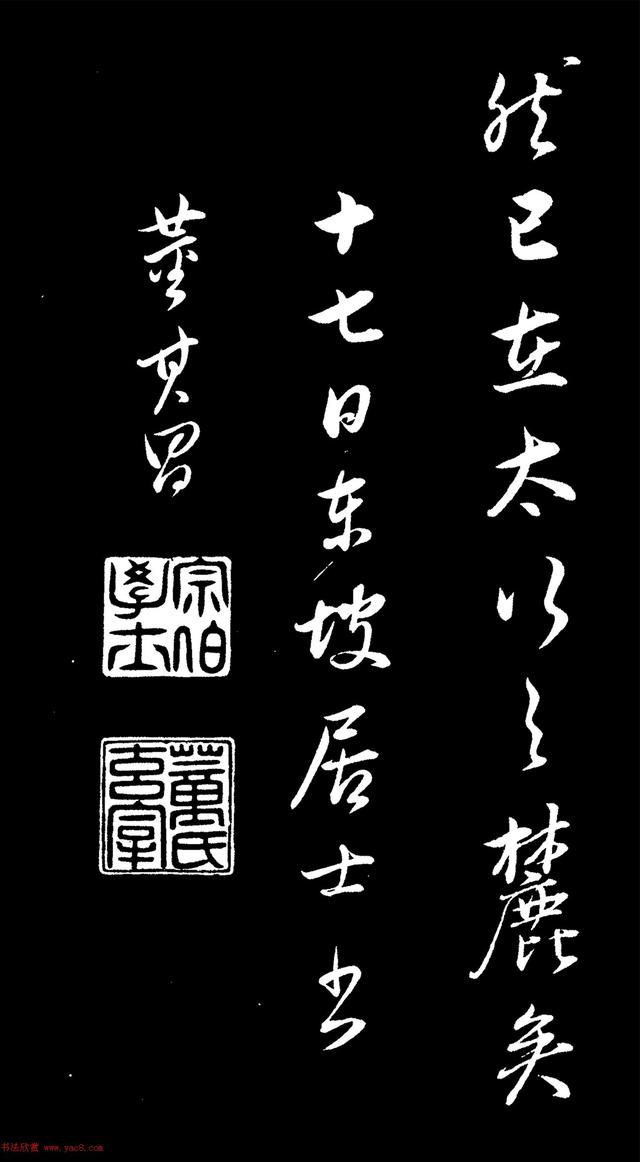 然已在太行之麓矣
十七日東坡居士書
董其昌
宗伯學士
董氏玄宰
书法欣赏 www.yac8.com